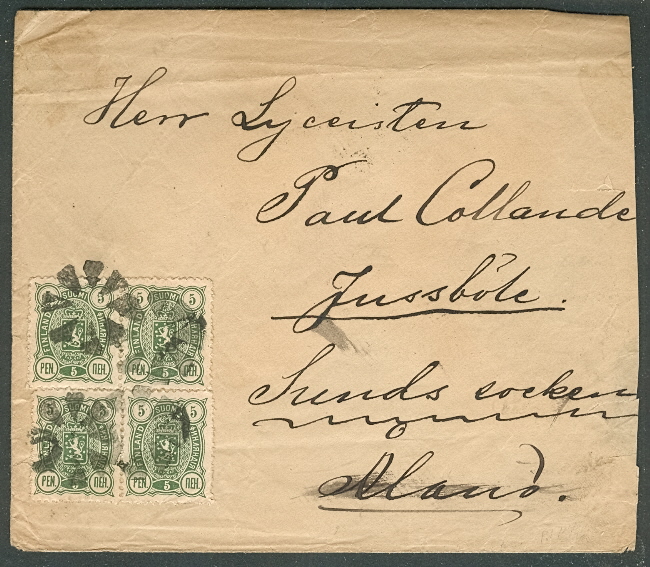 Herr Lyceisten
Paul Collande
Jussböle.
Sunds socken
Åland.
SUOMI
FINLAND
5 5
PEN. 5 ПЕН.
SUOMI
FINLAND
5 5
PEN. 5 ПЕН.
SUOMI
FINLAND
5 5
PEN. 5 ПЕН.
SUOMI
FINLAND
5 5
PEN. 5 ПЕН.